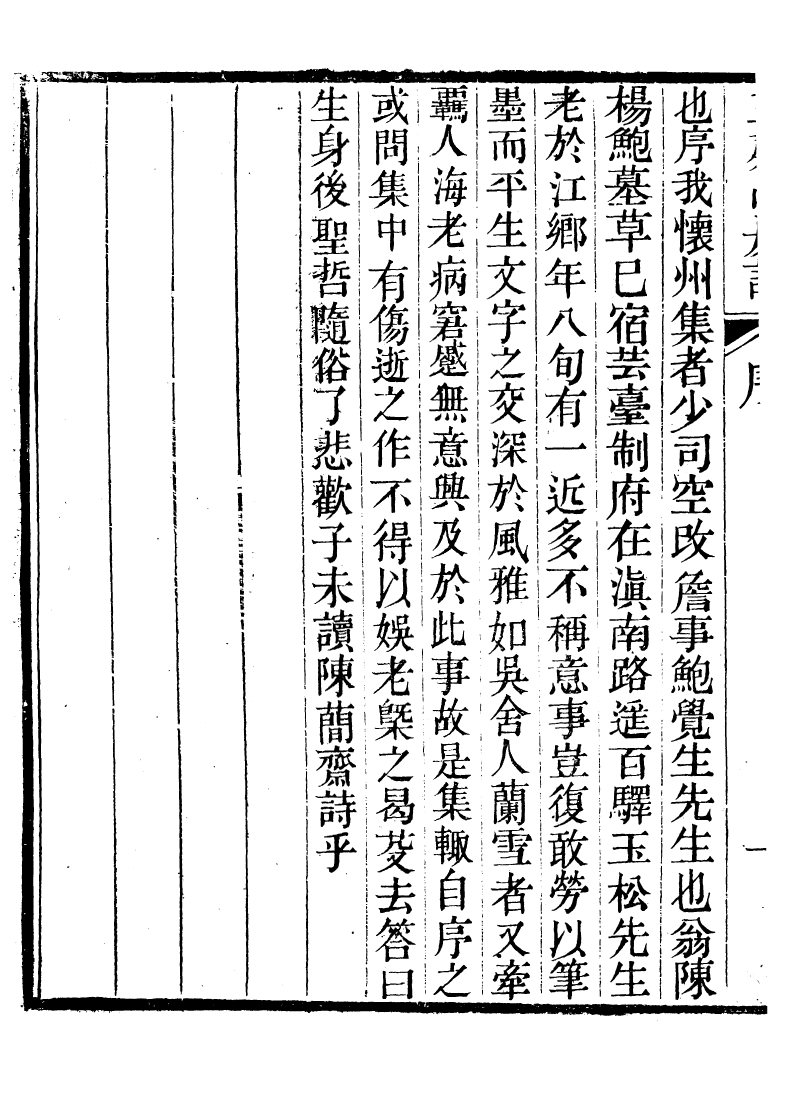 序
一
也序我懷州集者少司空改詹事鮑覺生先生也翁陳
楊鮑墓草已宿芸臺制府在滇南路遥百驛玉松先生
老於江鄉年八旬有一近多不稱意事豈復敢勞以筆
墨而平生文字之交深於風雅如吳舍人蘭雪者又牽
羈人海老病窘蹙無意興及於此事故是集輒自序之
或問集中有傷逝之作不得以娛老槩之曷芟去答曰
生身後聖哲隨俗了悲歡子未讀陳蕳齋詩乎